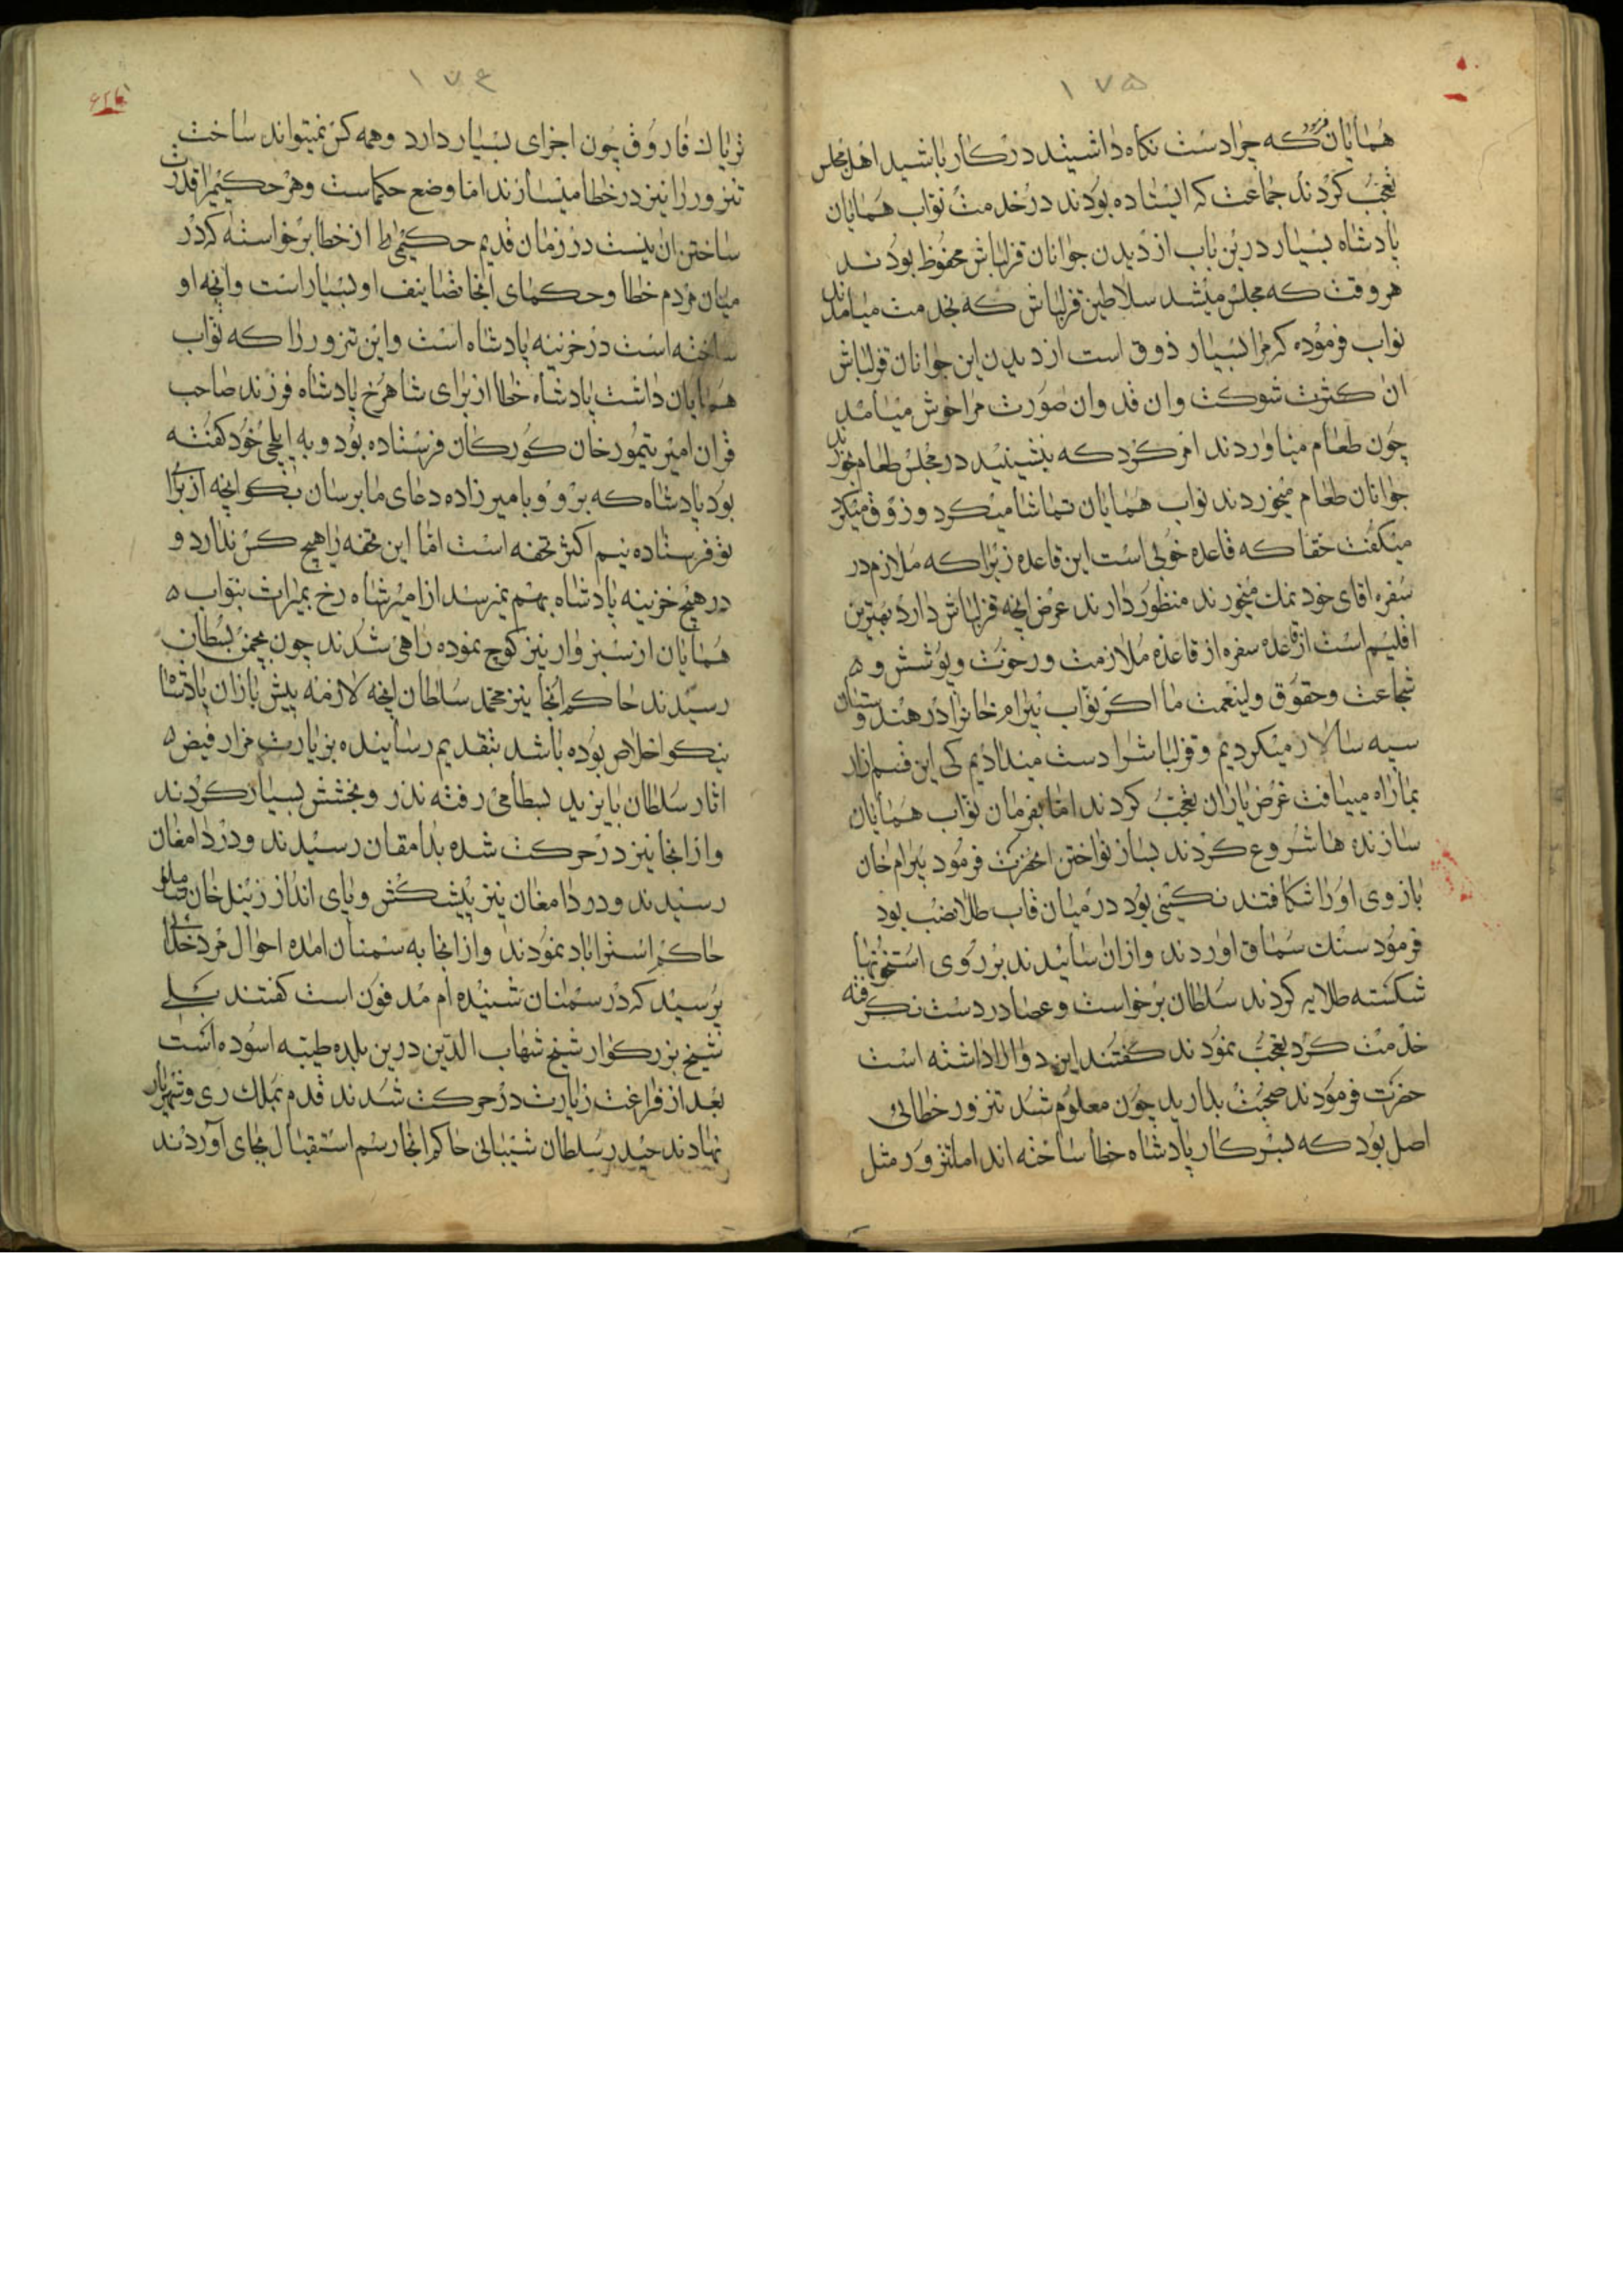 ١٧۵
همایان فرمود که چرا دست نکاه داشیتد در کار باشید اهل مجلس
تعجب کردند جماعت که ایستاده بودند در خدمت نواب همایان
پادشاه بسیار درین باب از دیدن جوانان قزلباش محفوظ بودند
هر وقت که مجلس میشد سلاطین قزلباش که بخدمت میامدند
نواب فرموده که مرا بسیار ذوق است از دیدن این جوانان قزلباش
ان کثرت شوکت وان قد وان صورت مرا خوش میامد
چون طعام میاوردند امر کرد که بنشینید در مجلس طعام بخورند
جوانان طعام میخوردند نواب همایان تماشا میکرد و زوق میکرد
میکفت حقا که قاعده خوبی است این قاعده زیرا که ملازم در
سفره اقای خود نمک میخورند منظور دارند عرض انچه قزلباش دارد بهترین
اقلیم است از قاعده سفره از قاعده ملازمت و رخوت و پوشش و
شجاعت و حقوق ولینعمت ما اکر نواب بیرام خانرا در هندوستان
سپه سالار میکردیم و قزلباشرا دست میدادیم کی این قسم زار
بما راه مییافت غرض یاران تعجب کردند اما بفرمان نواب همایان
سازنده ها شروع کردند بساز نواختن انحضرت فرمود بیرام خان
بازوی اورا شکافتند نکینی بود در میان قاب طلا نصب بود
فرمود سنک سماق اوردند وازان سائیدند بر روی استخوانها
شکسته طلایه کردند سلطان برخواست و عصا در دست نکرفته
خدمت کرد تعجب نمودند کفتند این دوا را داشته است
حضرت فرمودند صحبت بدارید چون معلوم شد تنزور خطائی
اصل بود که بسرکار پادشاه خطا ساخته اند اما تنزور مثل
١٧٤
تریاک فاروق چون اجزای بسیار دارد وهمه کس نمیتواند ساخت
تنزور را نیز در خطا میسازند اما وضع حکماست وهر حکیمرا قدرت
ساختن ان نیست در زمان قدیم حکیمی از خطا برخواسته که در
میان مردم خطا وحکمای انجا تصانیف او بسیار است وانچه او
ساخته است در خزینه پادشاه است واین تنزور را که نواب
همایان داشت پادشاه خطا از برای شاهرخ پادشاه فرزند صاحب
قران امیر تیمور خان کورکان فرستاده بود و به ایلچی خود کفته
بود پادشاه که برو و بامیر زاده دعای ما برسان بکو انچه از برا
تو فرستاده نیم اکثر تحفه است اما این تحفه را هیچ کس ندارد و
در هیچ خزینه پادشاه بهم نمیرسد از امیر شاه رخ بمیراث بنواب
همایان از سبزوار نیز کوچ نموده راهی شدند چون بچمن بسطان
رسیدند حاکم انجا نیز محمد سلطان انچه لازمه پیش بازان پادشاها
نیکو اخلاص بوده باشد بتقدیم رسانیده بزیارت مزار فیض
اثار سلطان بایزید بسطامی رفته نذر و بخشش بسیار کردند
وازانجا نیز در حرکت شده بدامقان رسیدند و در دامغان
رسیدند و در دامغان نیز پیشکش و پای انداز زینل خان شاملو
حاکم استراباد نمودند وازانجا به سمنان امده احوال مرد خدائی
پرسید که در سمنان شنیده ام مدفون است کفتند بلے
شیخ بزرکوار شیخ شهاب الدین درین بلده طیبه اسوده است
بعد از فراغت زیارت در حرکت شدند قدم بملک ری و شهریار
نهادند حیدر سلطان شیبانی حاکم انجا رسم استقبال بجای آوردند